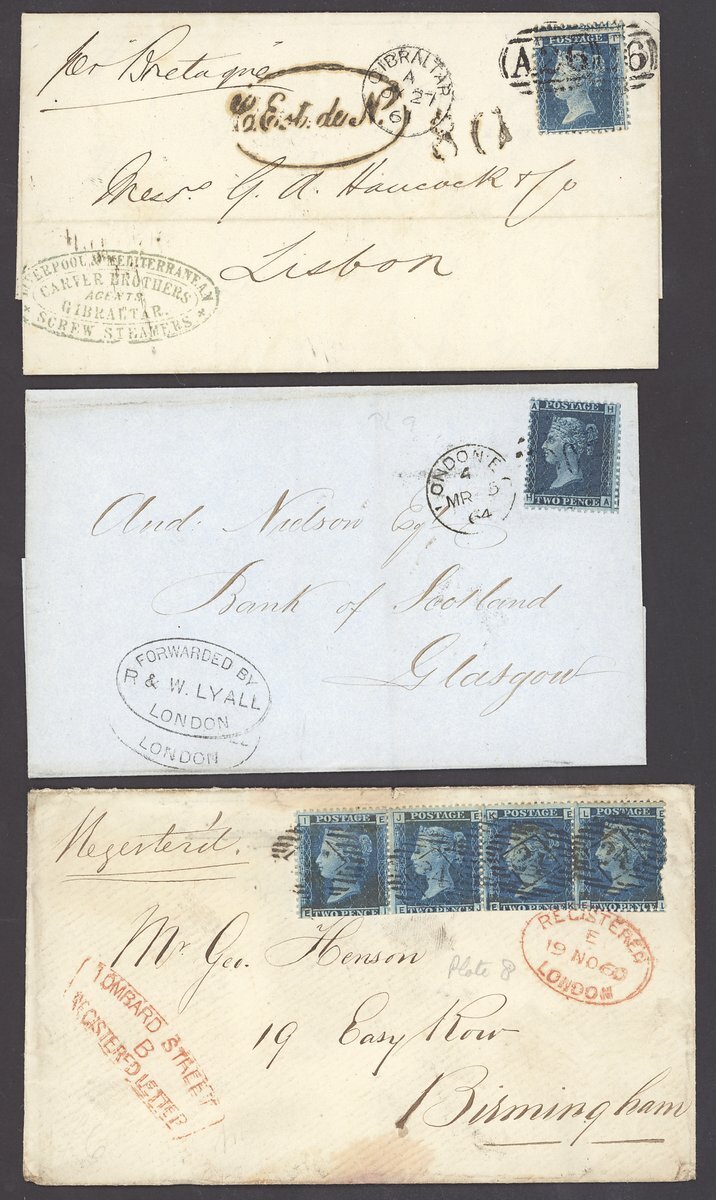 per "Bretagne"
GIBRALTAR
A
27
61
A 26
6
Est. de N.
80
Messrs G. A. Hancock & Co
Lisbon
LIVERPOOL & MEDITERRANEAN
CARVER BROTHERS
AGENTS
GIBRALTAR.
SCREW STEAMERS
POSTAGE
A H
POSTAGE
H A
TWO PENCE
PL 9
LONDON E
4
MR 5
64
And: Nielson Esq
Bank of Scotland
Glasgow
FORWARDED BY
R & W. LYALL
LONDON
LONDON
I POSTAGE E
J POSTAGE E
K POSTAGE E
L POSTAGE E
E TWO PENCE I
E TWO PENCE
E TWO PENCE K
E TWO PENCE L
Registerd.
REGISTERED
E
19 NO 60
LONDON
Mr Geo. Henson
Plate 8
19 Easy Row
Birmingham
LOMBARD STREET
B
REGISTERED LETTER